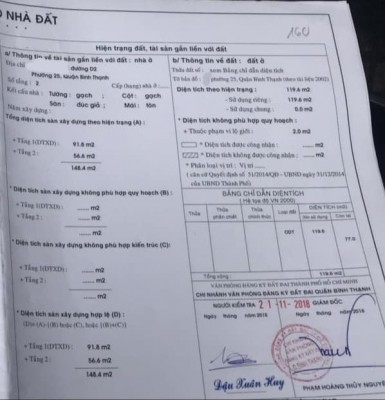 Ồ NHÀ ĐẤT
160
Hiện trạng đất, tài sản gắn liền với đất.
a/ Thông tin về tài sản gắn liền với đất : nhà ở
Địa chỉ đường D2
Phường 25, Quận Bình Thạnh
Số tầng : 2
Cấp (hạng) nhà ở :
Kết cấu nhà : Tường : gạch ; Cột : gạch
Sàn : đúc giả ; Mái : tôn
Năm xây dựng :
Tổng diện tích sàn xây dựng theo hiện trạng (A) :
+ Tầng 1(DTXD) : 91.8 m2
+ Tầng 2 : 56.6 m2
148.4 m2
* Diện tích sàn xây dựng không phù hợp quy hoạch (B) :
+ Tầng 1(DTXD) : ...... m2
+ Tầng 2 : ...... m2
...... m2
* Diện tích sàn xây dựng không phù hợp kiến trúc (C) :
+ Tầng 1(DTXD) : ...... m2
+ Tầng 2 : ...... m2
...... m2
* Diện tích sàn xây dựng hợp lệ (D) :
(D)= (A)-{(B) hoặc (C), hoặc [(B)+(C)]}
+ Tầng 1(DTXD) : 91.8 m2
+ Tầng 2 : 56.6 m2
148.4 m2
b/ Thông tin về đất : đất ở
Thửa đất số : xem Bảng chỉ dẫn diện tích
phường 25, Quận Bình Thạnh (theo tài liệu 2002)
Diện tích theo hiện trạng : 119.6 m2
- Sử dụng riêng : 119.6 m2
- Sử dụng chung : 0.0 m2
* Diện tích không phù hợp quy hoạch :
+ Thuộc phạm vi lộ giới : 2.0 m2
* Diện tích được công nhận : ...... m2
* Diện tích không được công nhận : ... m2
* Phân loại vị trí : Vị trí ......
( căn cứ Quyết định số 51/2014/QĐ - UBND ngày 31/12/2014
của UBND Thành Phố)
BẢNG CHỈ DẪN DIỆN TÍCH
( Hệ tọa độ VN 2000)
Thửa Thửa phân chiết Thửa chính thức Loại đất DIỆN TÍCH (m2)
ODT
Tổng cộng :
VĂN PHÒNG ĐĂNG KÝ ĐẤT ĐAI THÀNH PHỐ HỒ CHÍ MINH
CHI NHÁNH VĂN PHÒNG ĐĂNG KÝ ĐẤT ĐAI QUẬN BÌNH THẠNH
NGƯỜI KIỂM TRA 21 -11- 2018 GIÁM ĐỐC
Ngày tháng năm 2018 Ngày tháng năm 2018
Đậu Xuân Huy
PHẠM HOÀNG THỦY NGUYÊ